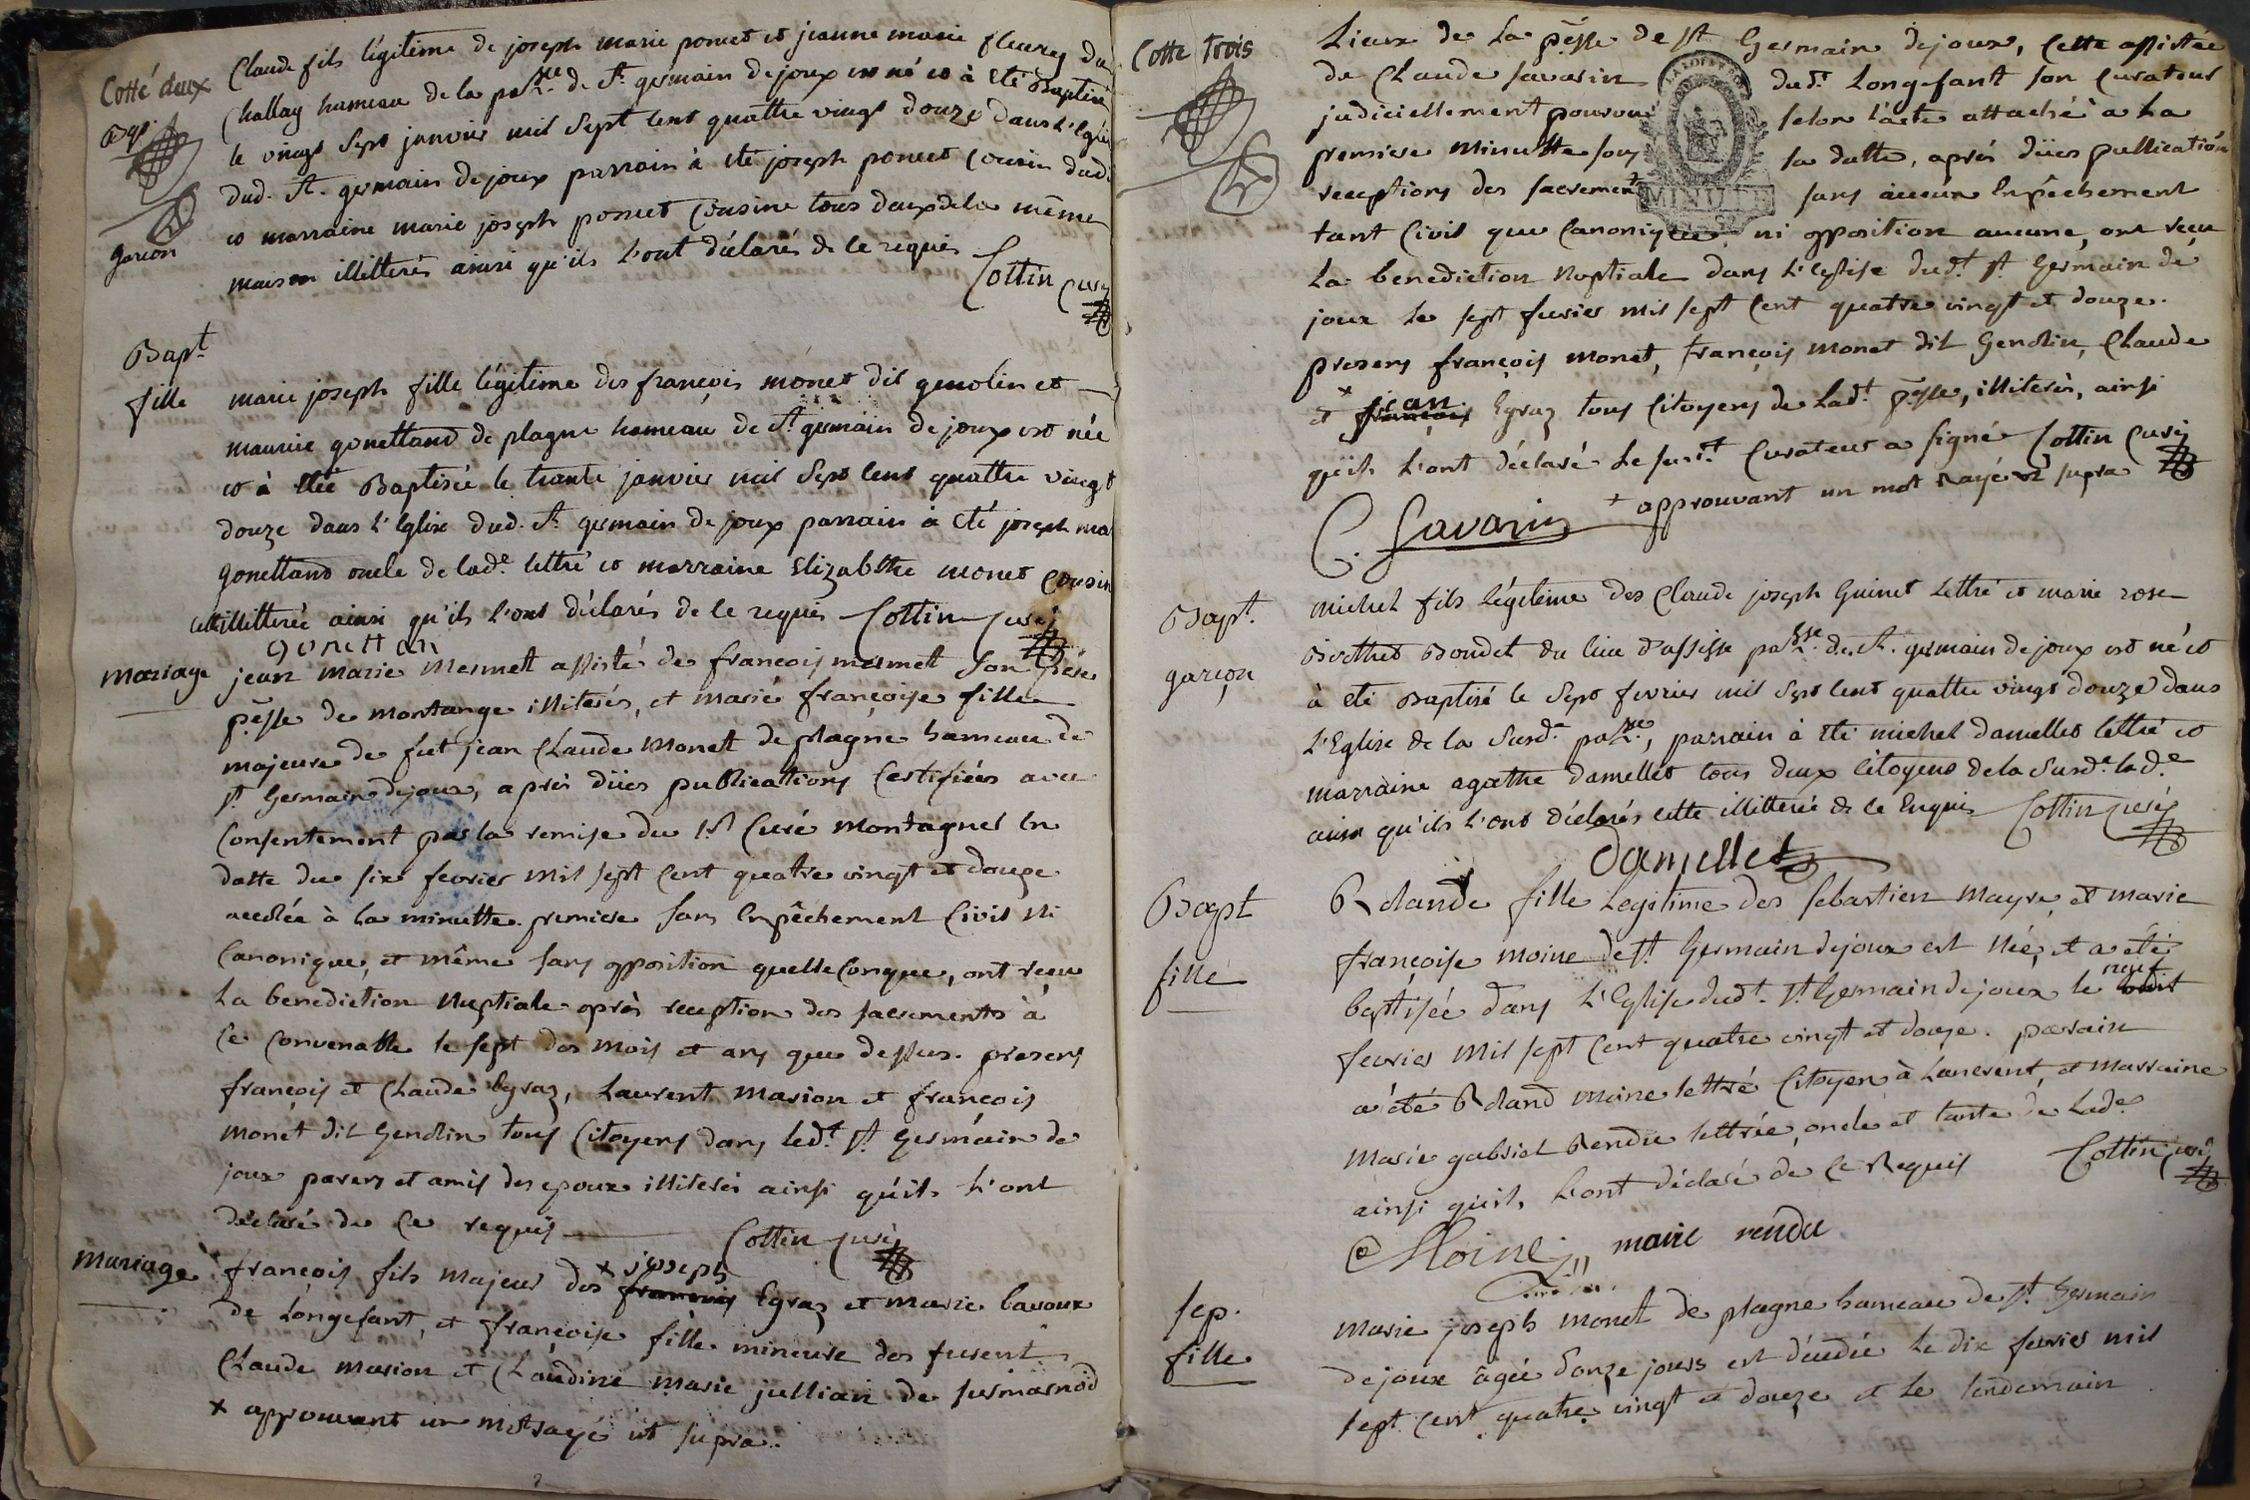 Cotté deux
Bapt.
garcon
Claude fils légitime de joseph marie poncet et jeanne marie fleurey du
Challay hameau de la passe. de St. germain de joux est né et à Eté Baptisé
le vingt Sept janvier mil Sept Cent quattre vingt douze dans L'Eglise
dud. St. germain de joux parrain à été joseph poncet Cousin dud.
et marraine marie joseph poncet Cousine tous deux de la même
maison illitterés ainsi qu'ils L'ont déclarés de ce requis
Cottin Curé
Bapt.
fille
marie joseph fille légitime des françois monet dit genolin et
maurie gonettand de plagne hameau de St. germain de joux est née
et à été Baptisée le trante janvier mil Sept Cent quattre vingt
douze dans L'Eglise dud. St. germain de joux parrain à été joseph ma
gonettand oncle de lade. lettré et marraine Elizabthe monet Cousin
cette illitterée ainsi qu'ils l'ont déclarés de ce requis Cottin Curé
gonettan
mariage
jean marie Mermett assisté de francois mermet son Père
pesse de montange illiterés, et marie françoise fille
majeure de fut jean Claude Monet de plagne hameau de
st Germain dejoux, après dües publications Certifiées avec
Consentement par la remise du sr Curé Montagnes En
datte du six fevrier mil sept Cent quatre vingt et douze
accolée à la minutte premiere sans Empêchement Civil Ni
Canonique, et même sans opposition quelleConque, ont reçu
La benediction Nuptiale après reception des sacements à
Ce Convenable le sept des mois et ans que dessus. presens
françois et Claude Egraz, Laurent Marion et françois
Monet dit Genolin tous Citoyens dans ledt. st Germain de
joux parens et amis des epoux illiterés ainsi qu'ils L'ont
déclaré de Ce requis
Cottin Curé
mariage
françois fils majeur des x joseph
françois Egraz et Marie bavoux
de Longefant, et françoise fille mineure des furent
Claude Marion et Claudine marie jullian de surmarnod
x approuvant un mot rayé ut supra.
Cotte trois
Lieux de La pesse de st Germain dejoux, Cette assistée
de Claude savarin dudt. Longefant son Curateur
judiciellement pourvu selon l'acte attaché à La
premiere Minutte sous sa datte, après dües pullication
receptions des sacrement sans aucun Empêchement
MINUTE
tant Civil que Canonique ni opposition aucune, ont reçu
La benediction Nuptiale dans L'eglise dudt. st Germain de
joux Le sept fevrier mil sept Cent quatre vingt et douze.
presens françois monet, françois monet dit Genolin, Claude
et x jean
françois Egraz tous Citoyens de Ladt. pesse, illiterés, ainsi
qu'ils L'ont déclaré Le susdt. Curateur a signé Cottin Curé
x approuvant un mot Rayé ut supra
C. Savarin
Bapt.
garçon
michel fils légitime des Claude joseph Guinet Lettré et marie rose
Berthet Boudet du lieu d'assise passe. de St. germain de joux est né et
à été Baptisé le Sept fevrier mil Sept Cent quattre vingt douze dans
L'Eglise de la Susde. passe, parrain à Eté michel damellet lettré et
marraine agathe damellet tous deux Citoyens de la Susde. lade.
ainsi qu'ils l'ont déclarés cette illitterée de ce Enquis Cottin Curé
Damellet
Bapt
fille
Rolande fille Legitime des sebastien Mayre, et marie
françoise moine de st Germain dejoux est Née, et a été
baptisée dans L'Eglise dudt. st Germain dejoux le neuf
fevrier Mil sept Cent quatre vingt et douze. parain
a été Roland Moine lettré Citoyen à Lancrent, et Marraine
Marie gabriel Rendu lettrée, oncle et tante de Lade.
ainsi qu'ils L'ont déclaré de Ce Requis Cottin Curé
Moine marie rendu
sep.
fille
Marie joseph Monet de plagne hameau de st Germain
dejoux âgée d'onze jours est décédée Le dix fevrier mil
sept Cent quatre vingt et douze et Le lendemain